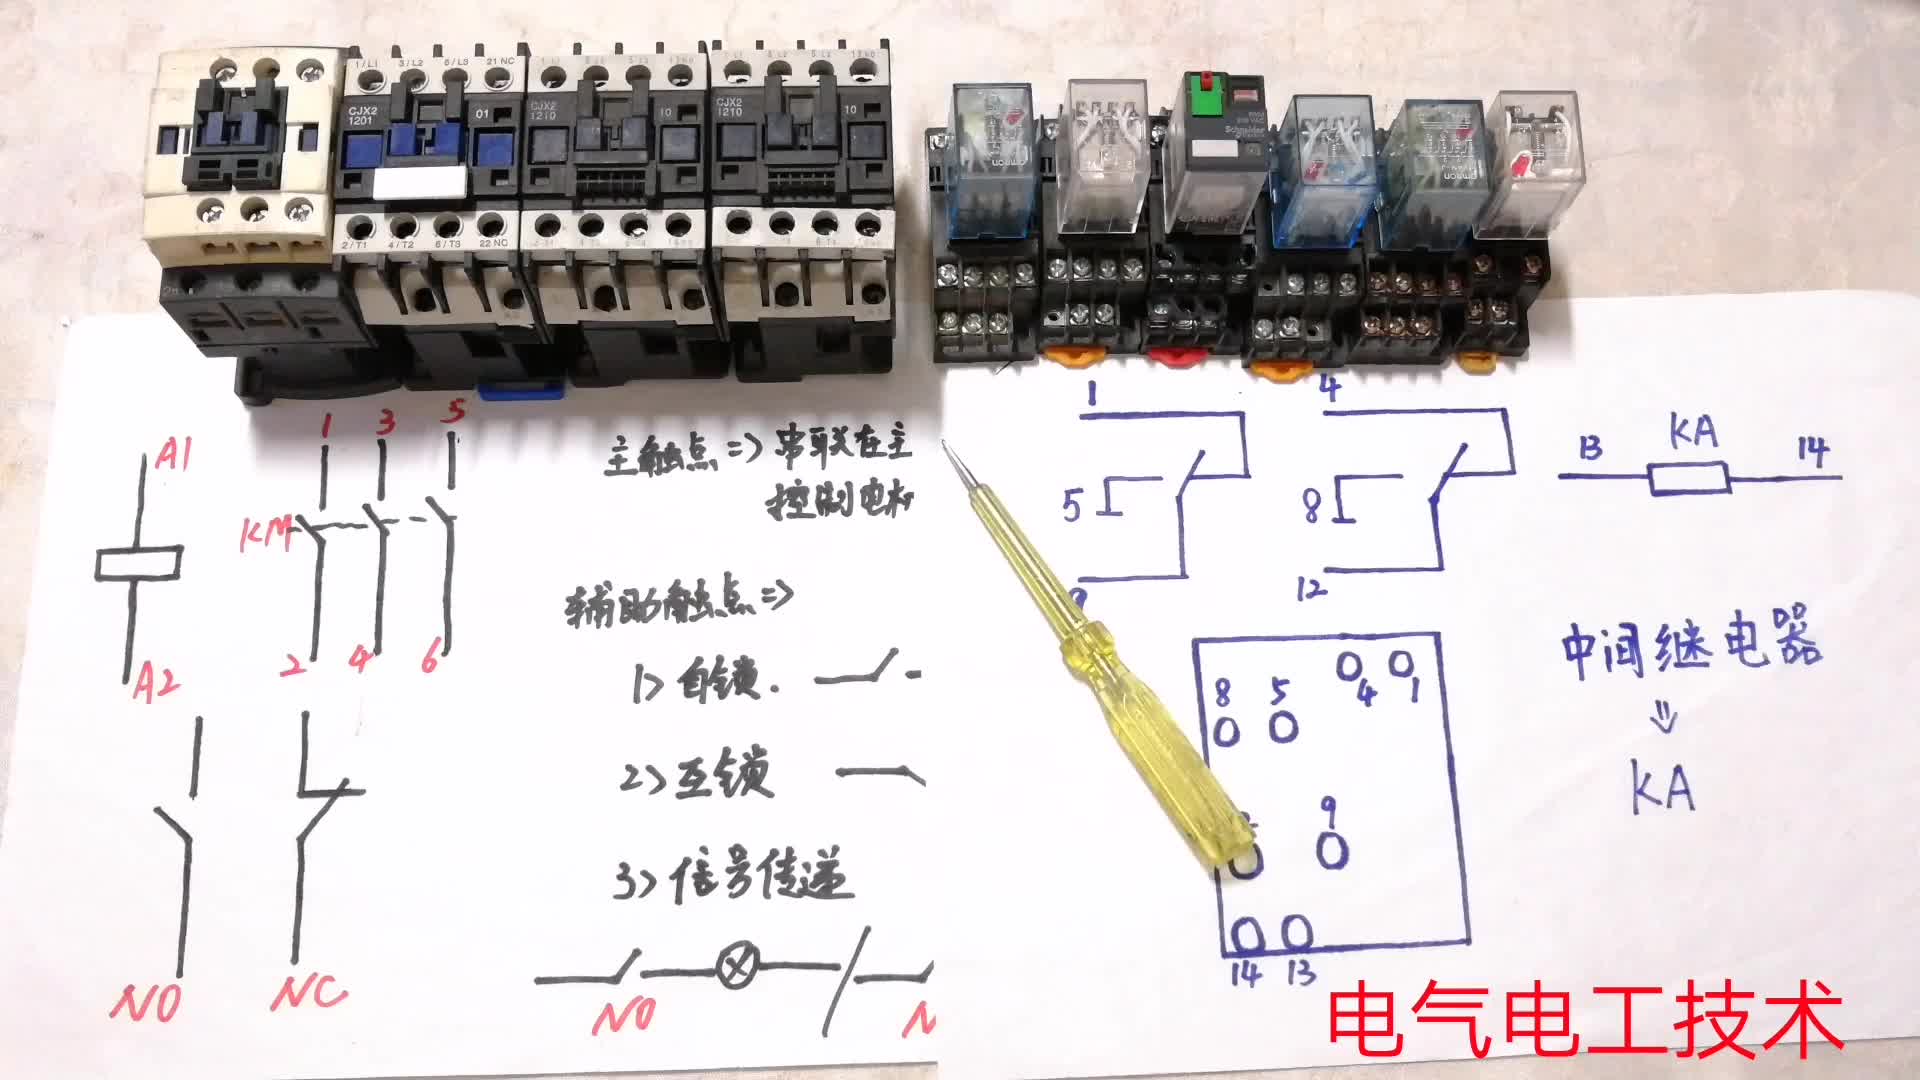 1/L1 3/L2 5/L3 21 NC
CJX2
1201
01
2/T1 4/T2 6/T3 22 NC
CJX2
1210
10
CJX2
1210
10
Schneider
omron
A1
A2
KM
1 3 5
2 4 6
NO
NC
主触点=>串联在主
控制电机
辅助触点=>
1>自锁.
2>互锁
3>信号传递
NO
1
5
9
4
8
12
13 KA 14
8 5 4 1
9
14 13
中间继电器
⇓
KA
电气电工技术